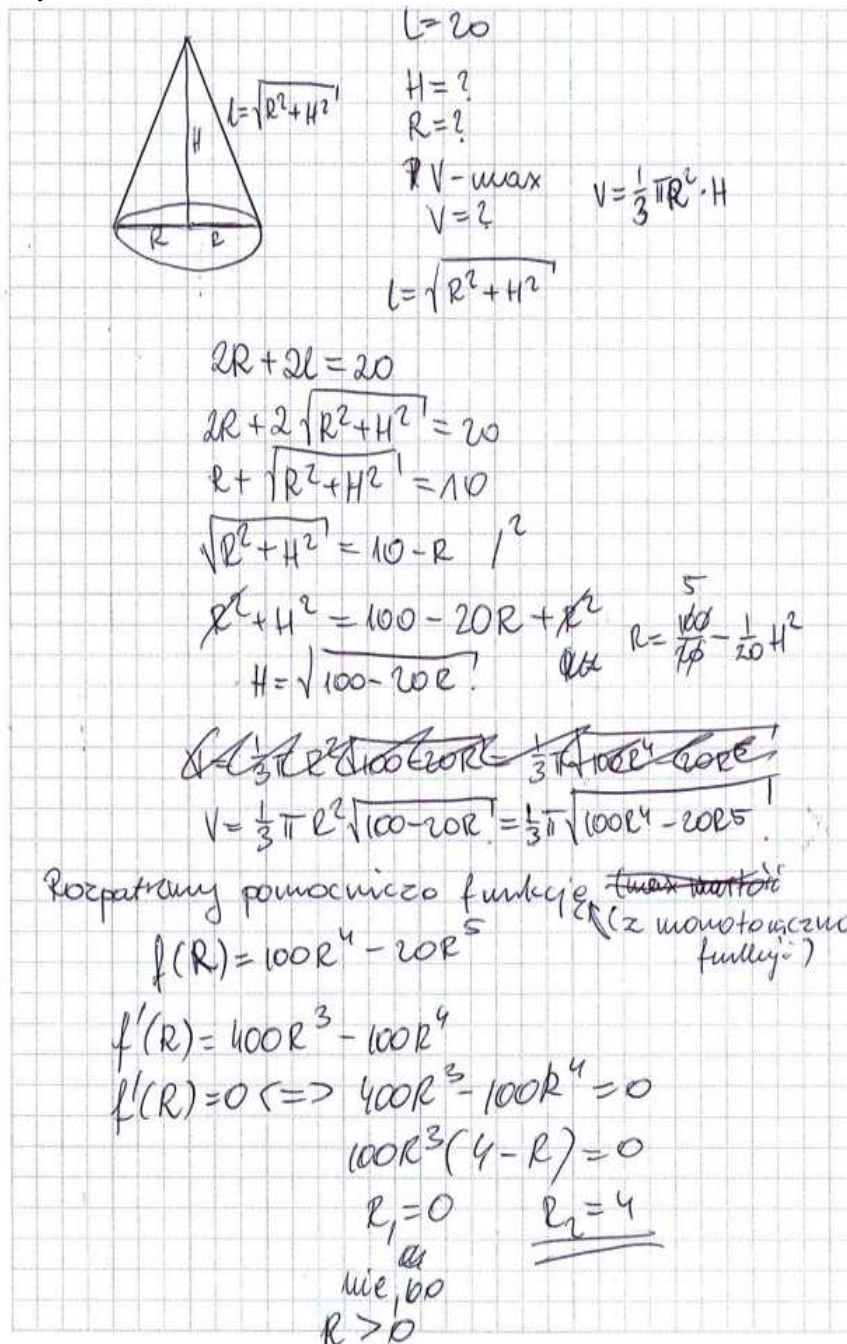 L=20
H=?
R=?
V-max
V=?
V=\frac{1}{3}πR²·H
l=√(R²+H²)
H
R R
l=√(R²+H²)
2R+2l=20
2R+2√(R²+H²)=20
R+√(R²+H²)=10
√(R²+H²)=10-R /²
R²+H²=100-20R+R²
R=\frac{100}{20}-\frac{1}{20}H²
5
H=√(100-20R)
V=\frac{1}{3}πR²√(100-20R)=\frac{1}{3}π√(100R⁴-20R⁵)
V=\frac{1}{3}πR²√(100-20R)=\frac{1}{3}π√(100R⁴-20R⁵)
Rozpatrzmy pomocniczo funkcję
(z monotoniczno
funkcji)
f(R)=100R⁴-20R⁵
f'(R)=400R³-100R⁴
f'(R)=0 <=> 400R³-100R⁴=0
100R³(4-R)=0
R₁=0 R₂=4
nie, bo
R>0